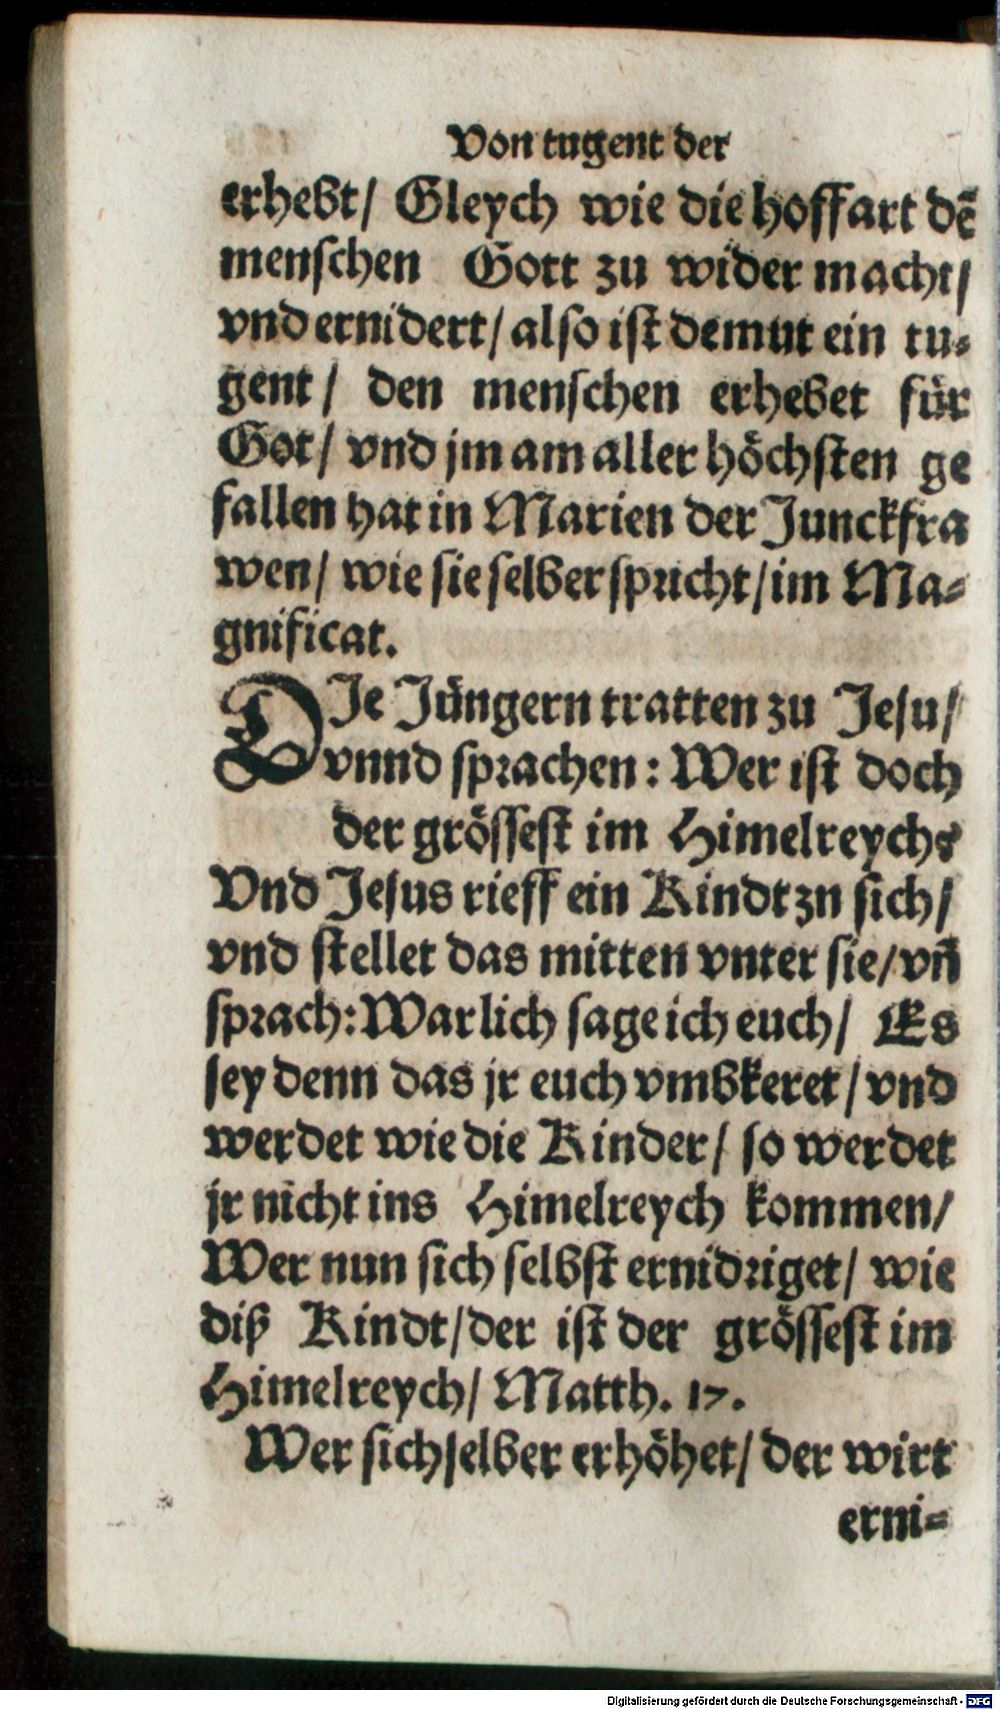 Von tugent der
erhebt/ Gleych wie die hoffart dē
menschen Gott zu wider macht/
vnd ernidert/ also ist demut ein tu⸗
gent/ den menschen erhebet für
Got/ vnd jm am aller höchsten ge
fallen hat in Marien der Junckfra
wen/ wie sie selber spricht/ im Ma⸗
gnificat.
DIe Jüngern tratten zu Jesu/
vnnd sprachen: Wer ist doch
der grössest im Himelreych?
Vnd Jesus rieff ein Kindt zn sich/
vnd stellet das mitten vnter sie/ vn̄
sprach: Warlich sage ich euch/ Es
sey denn das jr euch vmbkeret/ vnd
werdet wie die Kinder/ so werdet
jr nicht ins Himelreych kommen/
Wer nun sich selbst ernidriget/ wie
diß Kindt/ der ist der grössest im
Himelreych/ Matth. 17.
Wer sich selber erhöhet/ der wirt
erni⸗
Digitalisierung gefördert durch die Deutsche Forschungsgemeinschaft - DFG